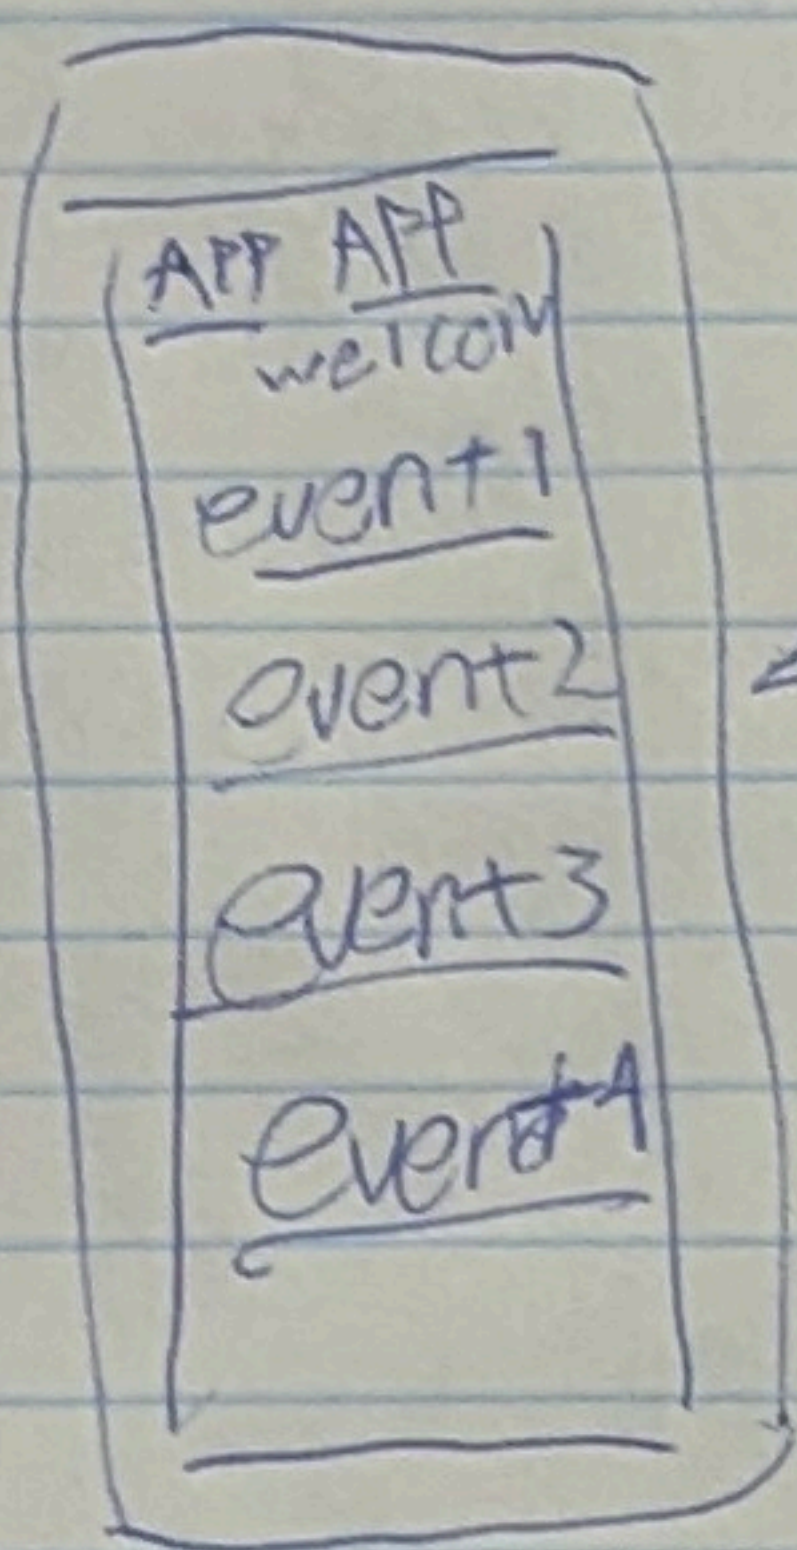 APP APP
welcom
event1
event2
event3
event4